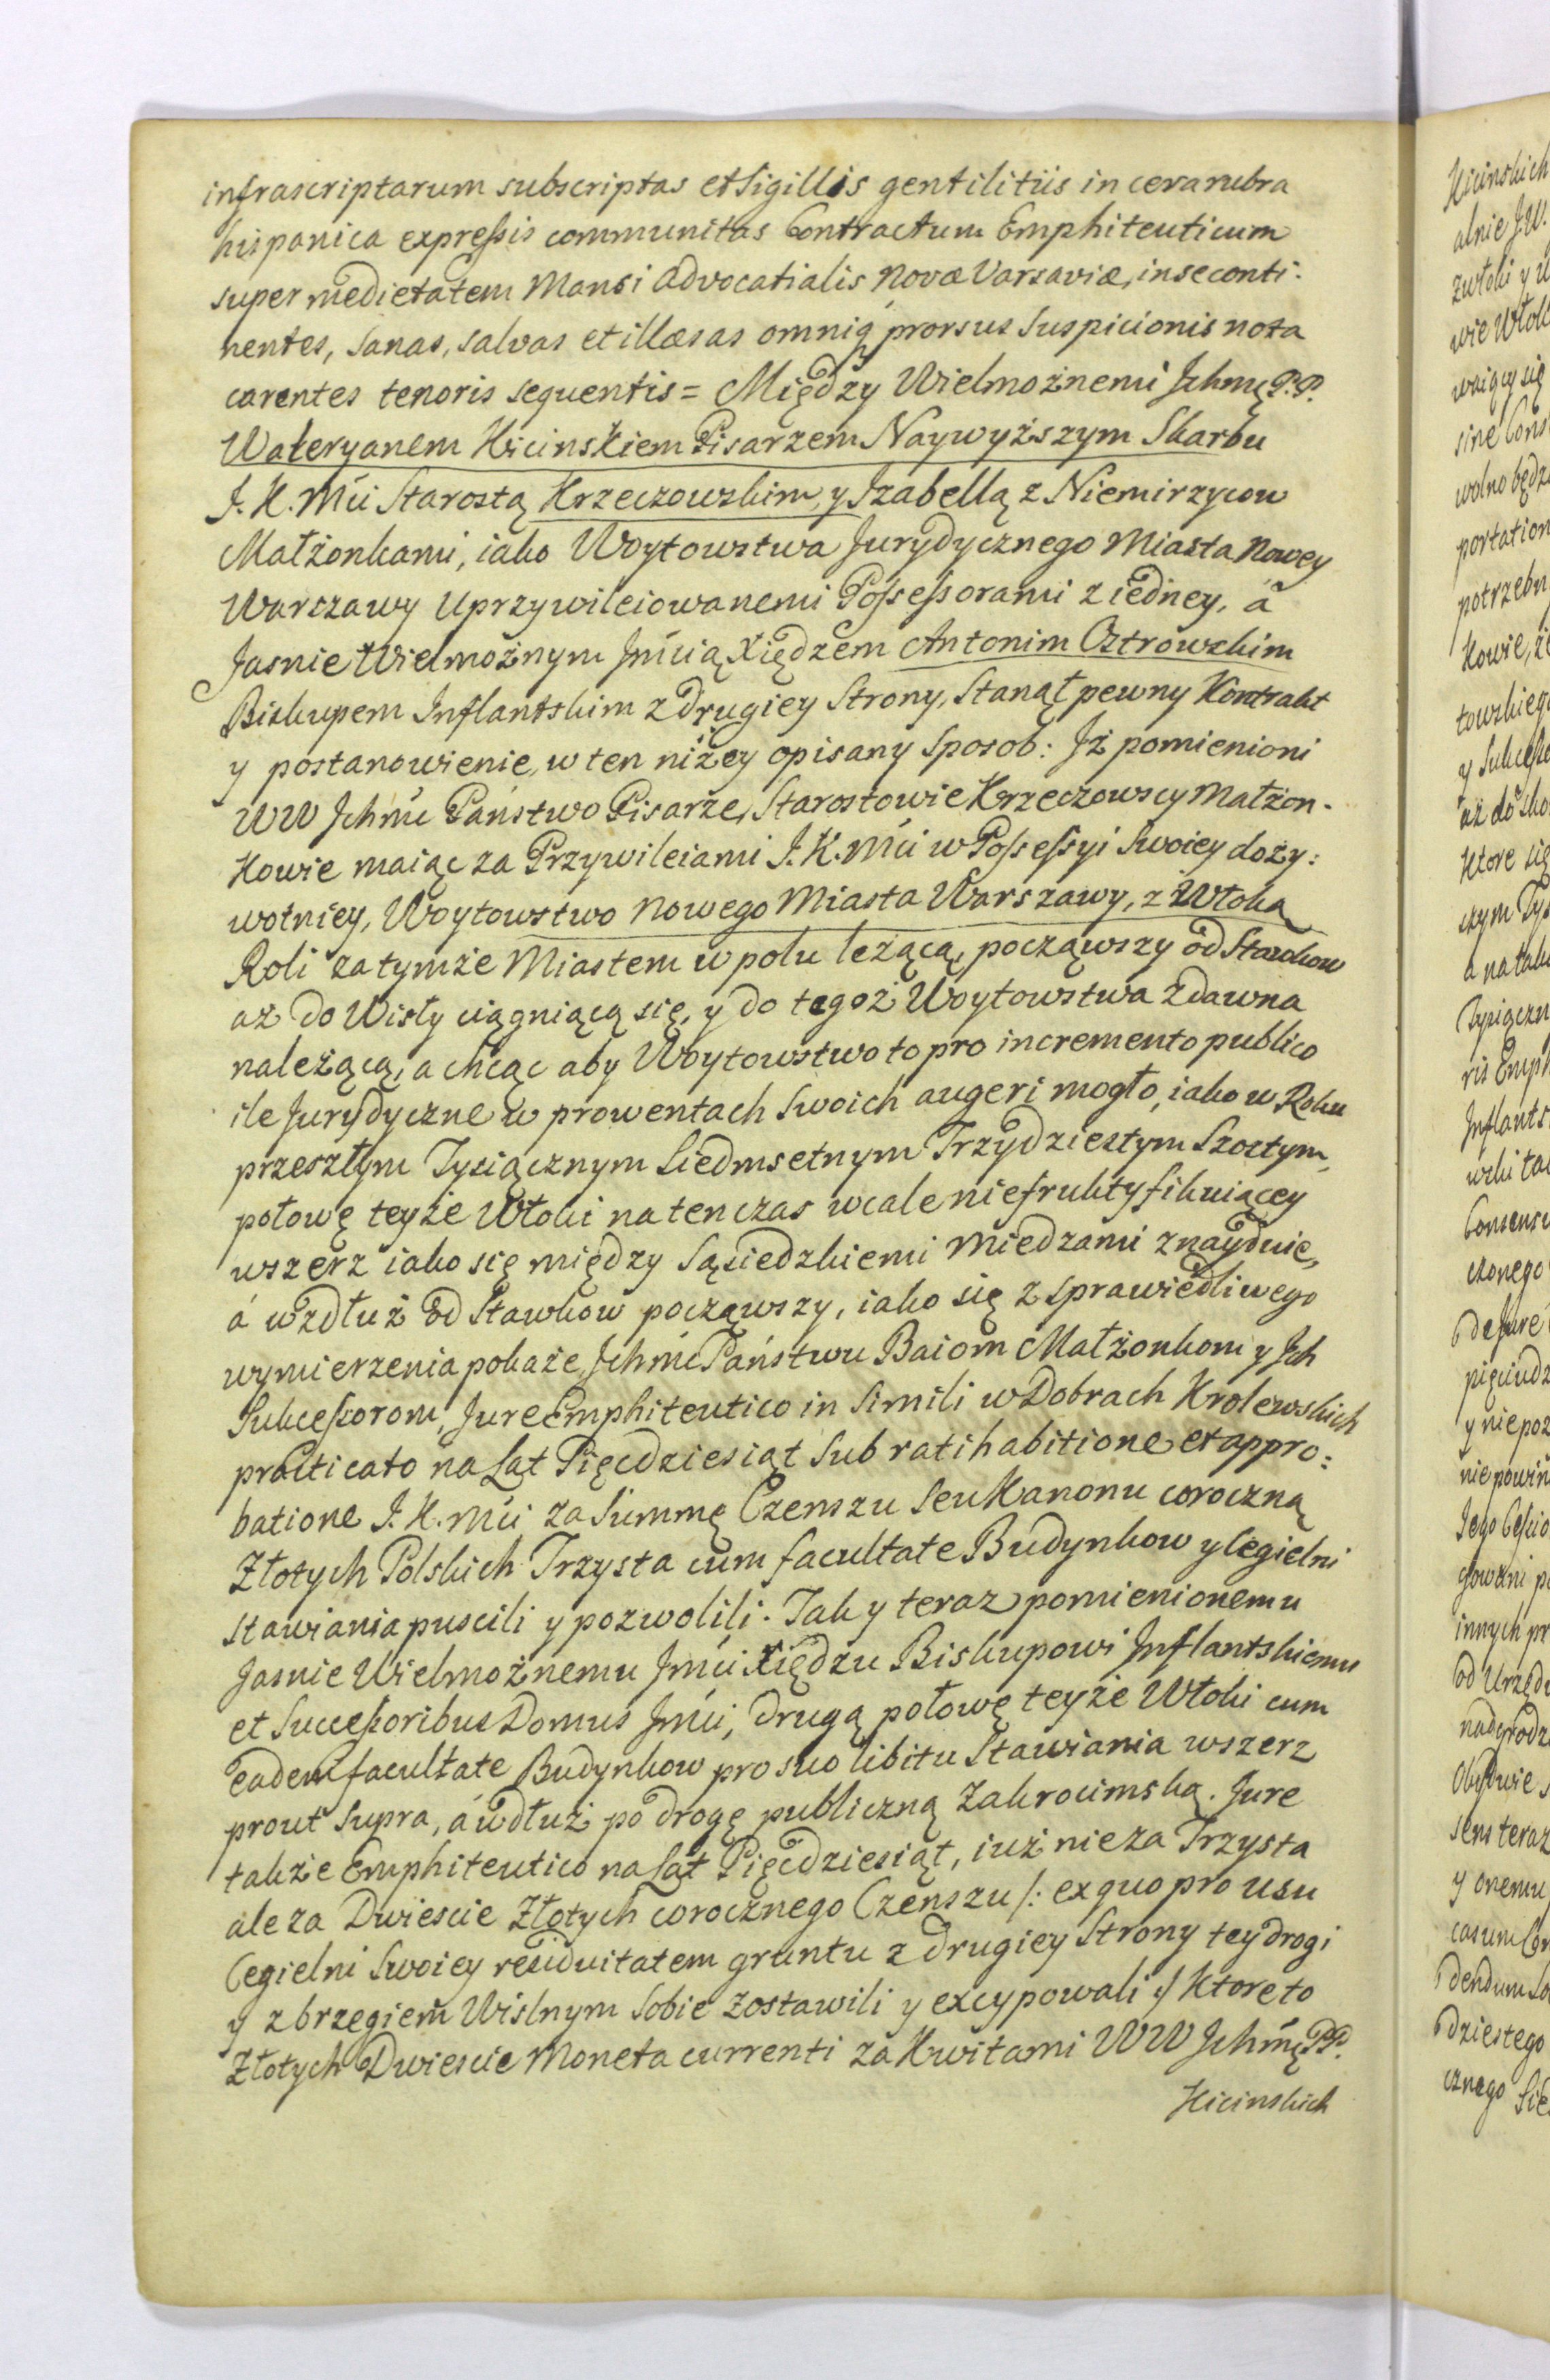 infrascriptarum subscriptas et Sigillis gentilitiis in cera rubra
hispanica expreſsis communitas Contractum Emphiteuticum
super medietatem Mansi advocatialis Novæ Varsaviæ, in se conti-
nentes, Sanas, salvas et illæsas omniq prorsus Suspicionis nota
carentes tenoris sequentis = Między Wielmożnemi Ichmę P.P.
Waleryanem Kicinskiem Pisarzem Naywyższym Skarbu
J. K. Mći Starostą Krzeczowskim, y Izabellą z Niemirzycow
Małżonkami, iako Woytowstwa Jurydycznego Miasta Nowey
Warszawy Uprzywileiowanemi Poſseſsorami z iedney, á
Jasnie Wielmożnym Jmścią Xiędzem Antonim Ostrowskim
Biskupem Inflantskim z drugiey Strony, Stanął pewny Kontrakt
y postanowienie, w ten niżey opisany Sposob: Iż pomienioni
WW Ichmć Państwo Pisarze, Starostowie Krzeczowscy Małżon-
kowie maiąc za Przywileiami J. K. Mći w Poſseſsyi Swoiey doży:
wotniey, Woytowstwo Nowego Miasta Warszawy, z Włoką
Roli za tymże Miastem w polu leżącą, począwszy od Stawkow
aż do Wisły ciągniącą się, y do tegoż Woytowstwa z dawna
należącą, a chcąc aby Woytowstwo to pro incremento publico
ile Jurydyczne w prowentach Swoich augeri mogło, iako w Roku
przeszłym Tysiącznym Siedmsetnym Trzydziestym Szostym,
połowę teyże Włoki na ten czas wcale niefruktyfikuiącey
wszerz iako się między Sąsiedzkiemi Miedzami znayduie,
á wzdłuż od Stawkow począwszy, iako się z sprawiedliwego
wymierzenia pokaże, Ichmć Państwu Baiom Małżonkom y Ich
Sukceſsorom, Jure Emphiteutico in Simili w Dobrach Krolewskich
practicato na Lat Pięcdziesiąt Sub ratihabitione et appro:
batione J. K. Mći za Summę Czenszu Seu Kanonu coroczną
Złotych Polskich Trzysta cum facultate Budynkow y Cegielni
stawiania puscili y pozwolili. Tak y teraz pomienionemu
Jasnie Wielmożnemu Jmći Xiędzu Biskupowi Inflantskiemu
et Succeſsoribus Domus Jmći, drugą połowę teyże Włoki cum
eadem facultate Budynkow pro suo libitu Stawiania wszerz
prout Supra, á wdłuż po drogę publiczną Zakrocimską. Jure
także Emphiteutico na Lat Pięcdziesiąt, iuż nie za Trzysta
ale za Dwiescie Złotych corocznego Czenszu /: ex quo pro usu
Cegielni Swoiey residuitatem gruntu z drugiey Strony tey drogi
y z brzegiem Wislnym Sobie zostawili y excypowali :/ Ktore to
Złotych Dwiescie Moneta currenti za Kwitami WW Ichmę PP.
Kicinskich